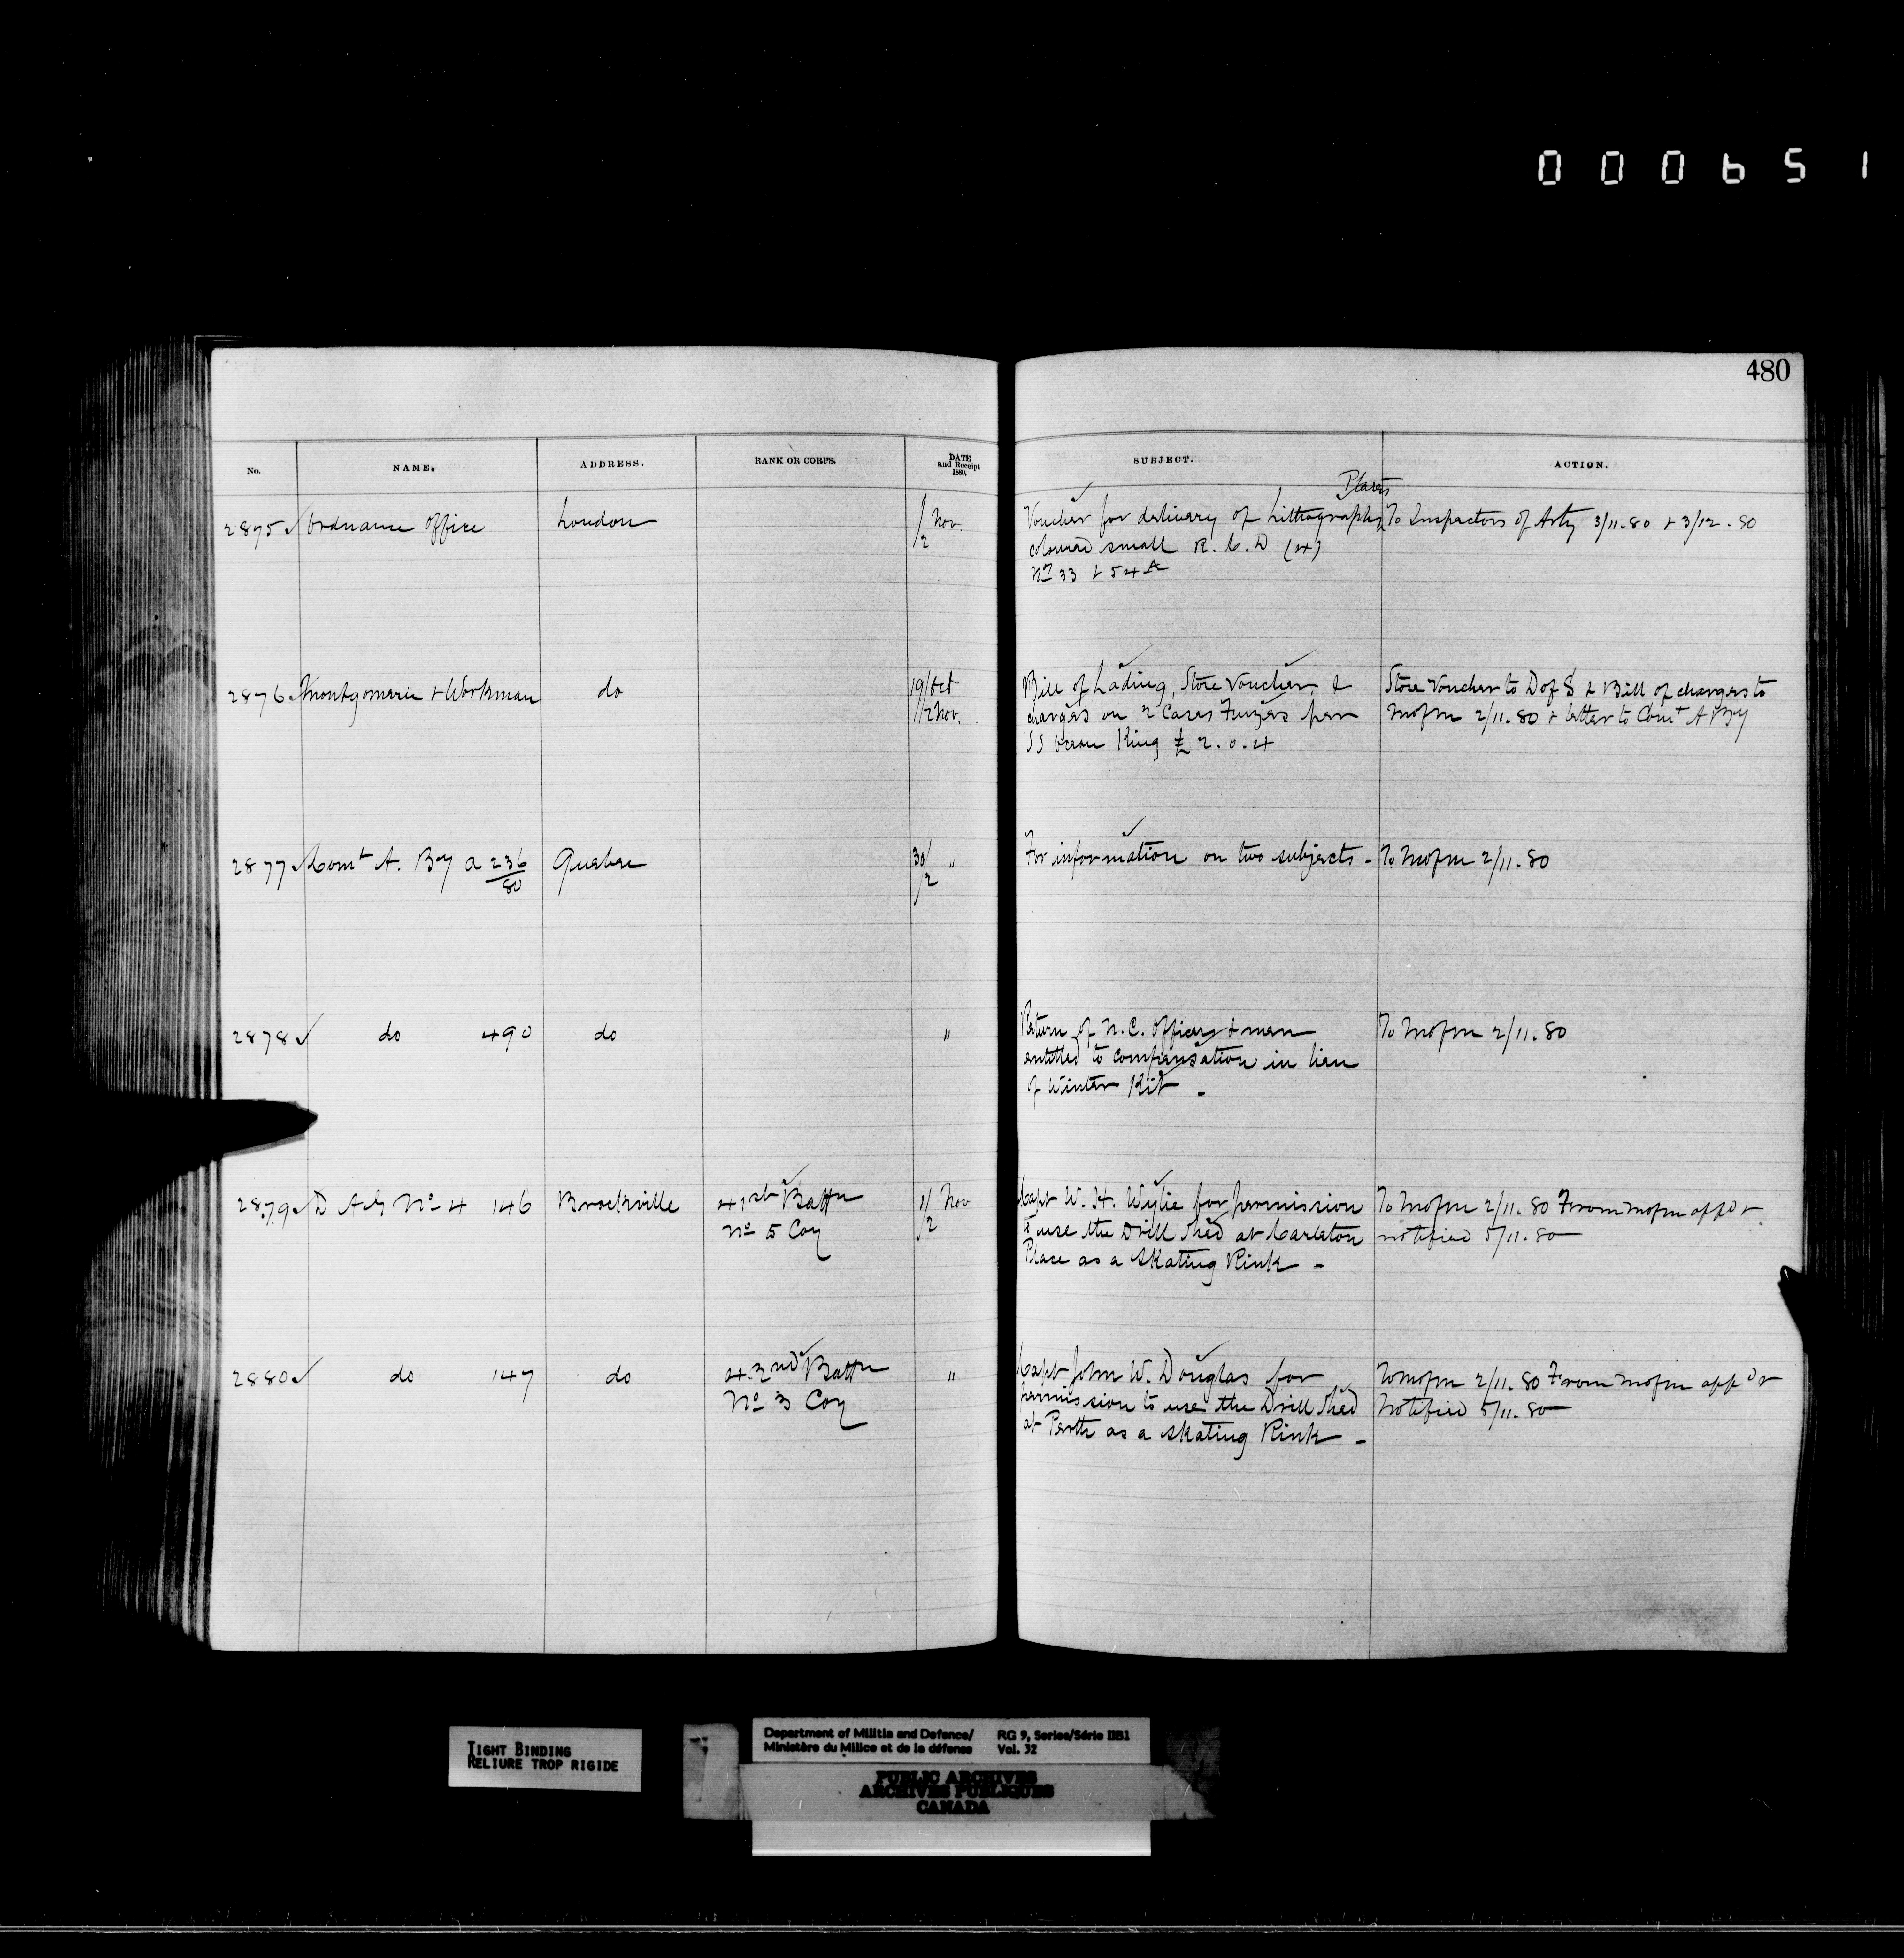 000651
480
No. NAME. ADDRESS. RANK OR CORPS. DATE and Receipt 1880. SUBJECT. ACTION.
Plates
2875 ✓ Ordnance Office London 1/2 Nov. Voucher for delivery of Lithographs To Inspectors of Arty 3/11.80 + 3/12.80
coloured small R.C.D (4)
Nos 33 + 54A
2876 Montgomerie + Workman do 19/Oct Bill of Lading, Store Voucher, & Store Voucher to D of S & Bill of charges to
/2 Nov. charges on 2 Cases Fuzes per MofM 2/11.80 + letter to Comt A By
SS Ocean King £2.0.4
2877 ✓ Comt A. By A 236/80 Quebec 30/2 " For information on two subjects - To MofM 2/11.80
2878 ✓ do 490 do " Return of N.C. Officers + men To MofM 2/11.80
entitled to compensation in lieu
of Winter Kit -
2879 ✓ D A G No 4 146 Brockville 41st Battn 1/2 Nov Capt W. H. Wylie for permission To MofM 2/11.80 From MofM appd +
No 5 Coy to use the Drill Shed at Carleton notified 5/11.80
Place as a Skating Rink -
2880 ✓ do 147 do 42nd Battn " Capt John W. Douglas for To MofM 2/11.80 From MofM appd +
No 3 Coy permission to use the Drill Shed Notified 5/11.80
at Perth as a Skating Rink -
TIGHT BINDING
RELIURE TROP RIGIDE
Department of Militia and Defence/ RG 9, Series/Série IIB1
Ministère du Milice et de la défense Vol. 32
PUBLIC ARCHIVES
ARCHIVES PUBLIQUES
CANADA